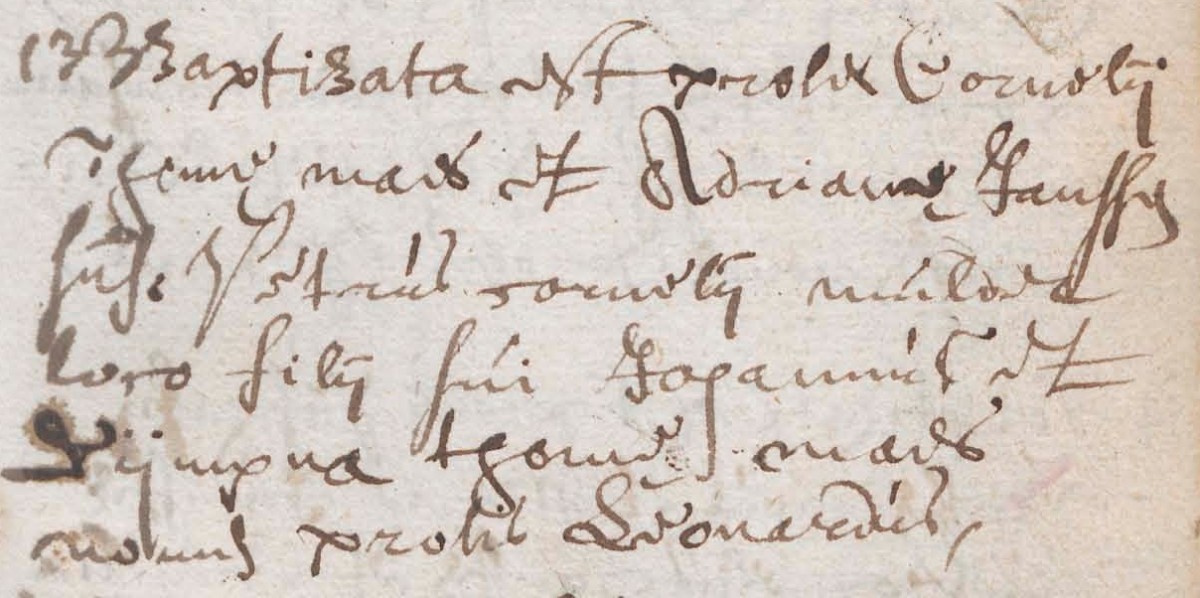 13 Baptizata est proles Cornelij
Thome maes et Adriane Janssen
sus. Petrus cornelij mulder
loco filij sui Johannis et
Dijmpna thome maes
nomen prolis Leonardus,